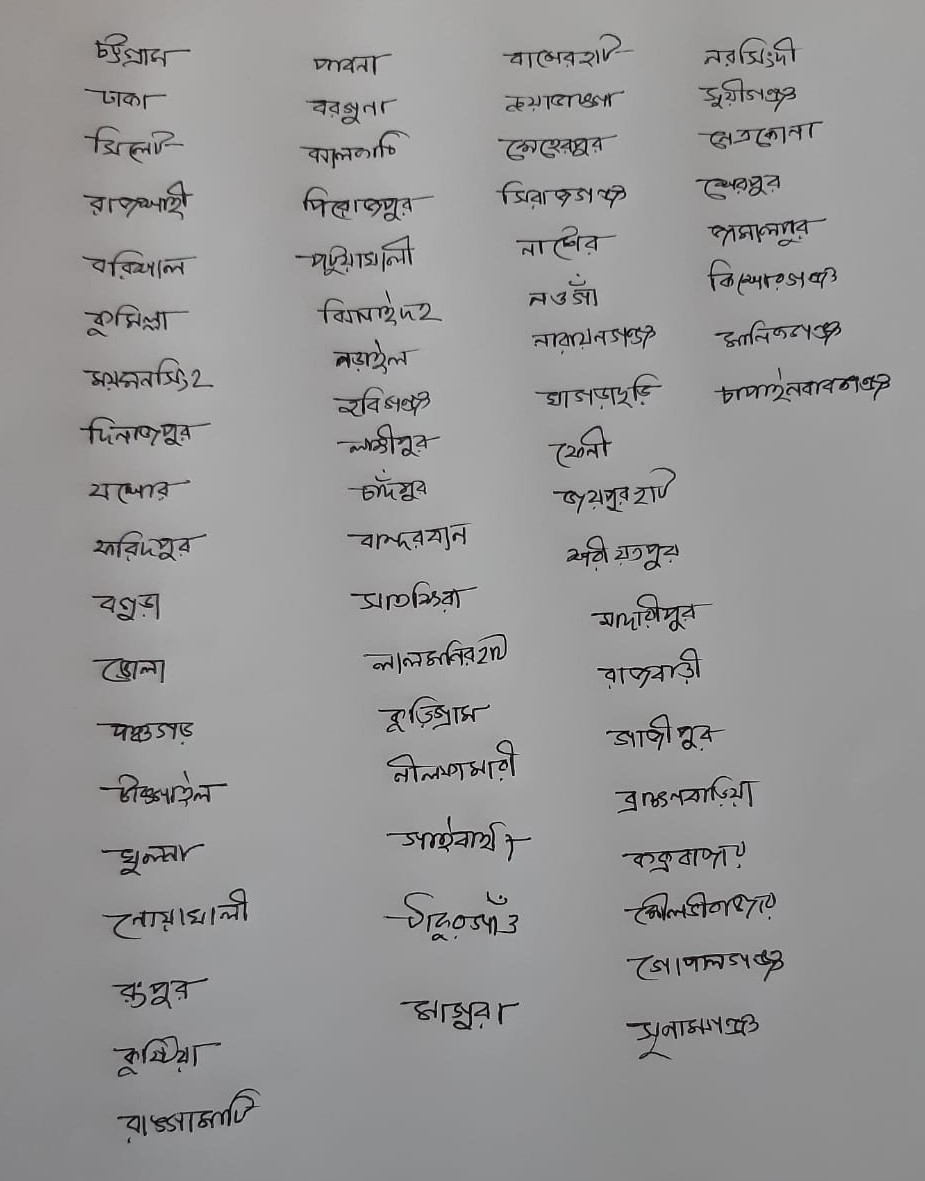 চট্টগ্রাম
ঢাকা
সিলেট
রাজশাহী
বরিশাল
কুমিল্লা
ময়মনসিংহ
দিনাজপুর
যশোর
ফরিদপুর
বগুড়া
ভোলা
পঞ্চগড়
টাঙ্গাইল
খুলনা
নোয়াখালী
রংপুর
কুষ্টিয়া
রাঙ্গামাটি
পাবনা
বরগুনা
ঝালকাঠি
পিরোজপুর
পটুয়াখালী
ঝিনাইদহ
নড়াইল
হবিগঞ্জ
লক্ষীপুর
চাঁদপুর
বান্দরবান
সাতক্ষিরা
লালমনিরহাট
কুড়িগ্রাম
নীলফামারী
গাইবান্ধা
ঠাকুরগাঁও
মাগুরা
বাগেরহাট
চুয়াডাঙ্গা
মেহেরপুর
সিরাজগঞ্জ
নাটোর
নওগাঁ
নারায়নগঞ্জ
খাগড়াছড়ি
ফেনী
জয়পুরহাট
শরীয়তপুর
মাদারীপুর
রাজবাড়ী
গাজীপুর
ব্রাহ্মনবাড়িয়া
কক্সবাজার
মৌলভীবাজার
গোপালগঞ্জ
সুনামগঞ্জ
নরসিংদী
মুন্সীগঞ্জ
নেত্রকোনা
শেরপুর
জামালপুর
কিশোরগঞ্জ
মানিকগঞ্জ
চাপাইনবাবগঞ্জ